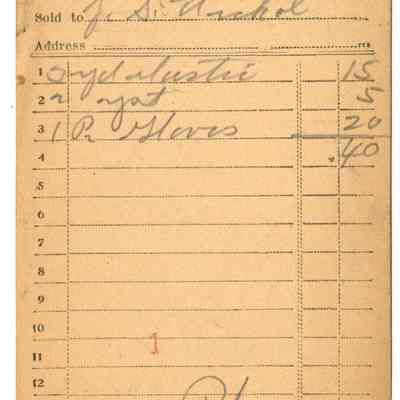 Sold to J. S. Nichol
Address
1 2 yd elastic 15
2 2 5
3 1 Pr Gloves 20
4 .40
5
6
7
8
9
10
11
12